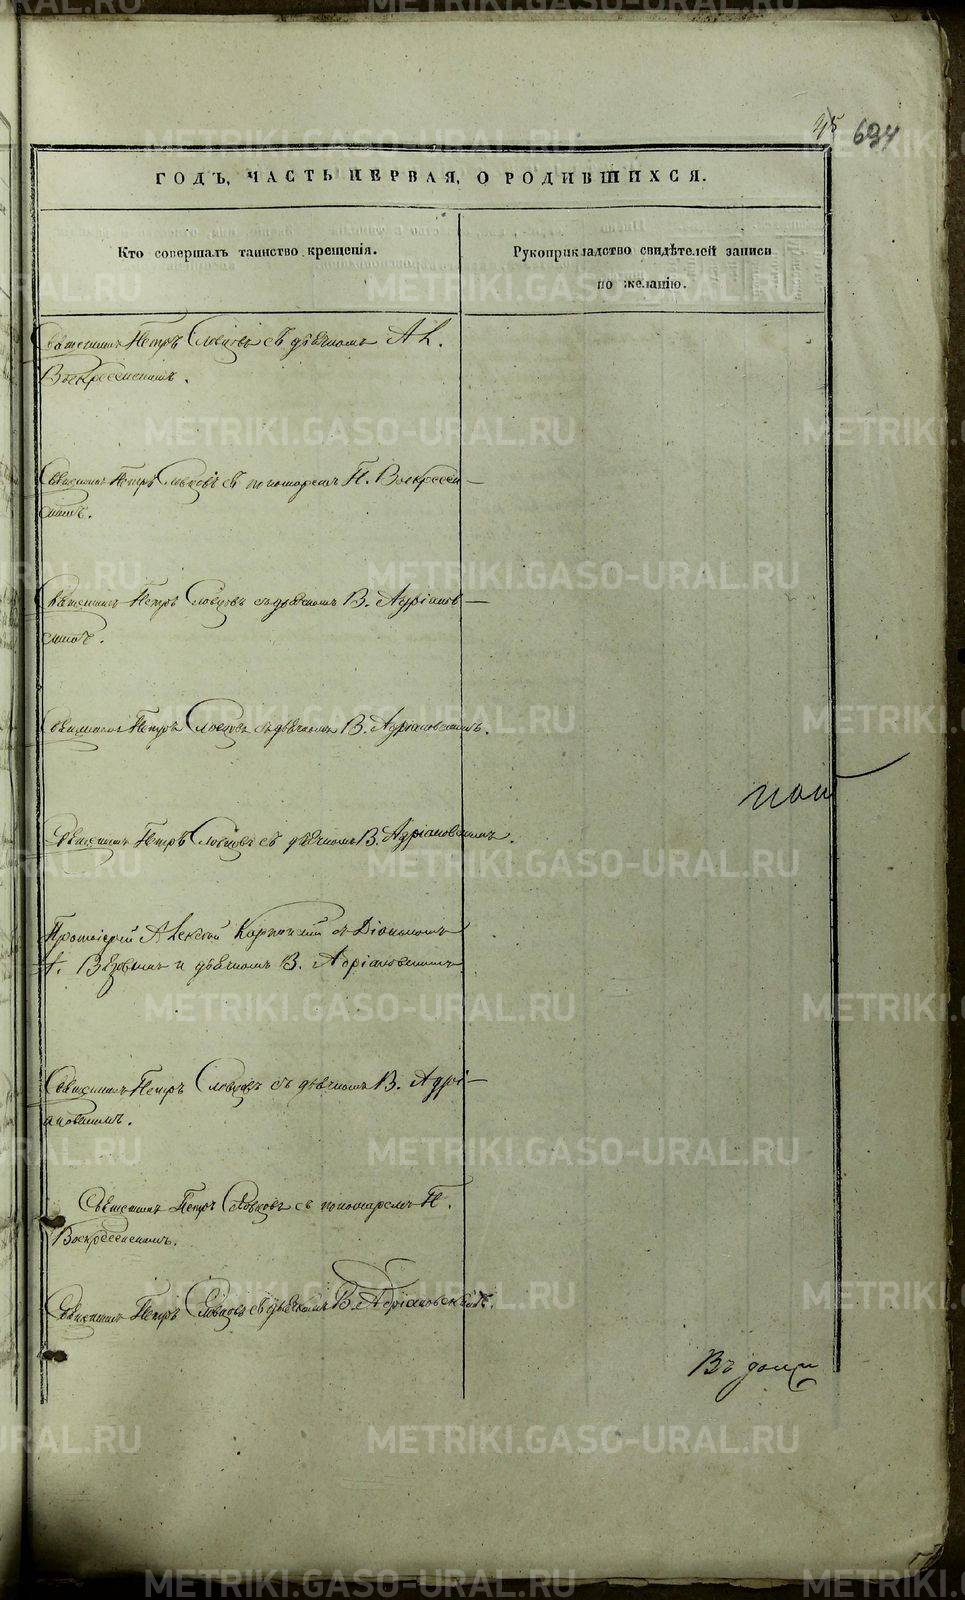 45 694
ГОДЪ, ЧАСТЬ ПЕРВАЯ, О РОДИВШИХСЯ.
Кто совершалъ таинство крещенія.
Рукоприкладство свидѣтелей записи
по желанію.
Священникъ Петръ Словцовъ съ дьячкомъ Ал.
Воскресенскимъ.
Священникъ Петръ Словцовъ съ пономаремъ П. Воскресен-
скимъ.
Священникъ Петръ Словцовъ съ дьячкомъ В. Адріанов-
скимъ.
Священникъ Петръ Словцовъ съ дьячкомъ В. Адріановскимъ.
Священникъ Петръ Словцовъ съ дьячкомъ В. Адріановскимъ.
Протоіерей Алексей Карпинскій съ Діакономъ
и дьячкомъ В. Адріановскимъ
Священникъ Петръ Словцовъ съ дьячкомъ В. Адрі-
ановскимъ.
Священникъ Петръ Словцовъ съ пономаремъ П.
Воскресенскимъ.
Священникъ Петръ Словцовъ съ дьячкомъ В. Адріановскимъ.
METRIKI.GASO-URAL.RU